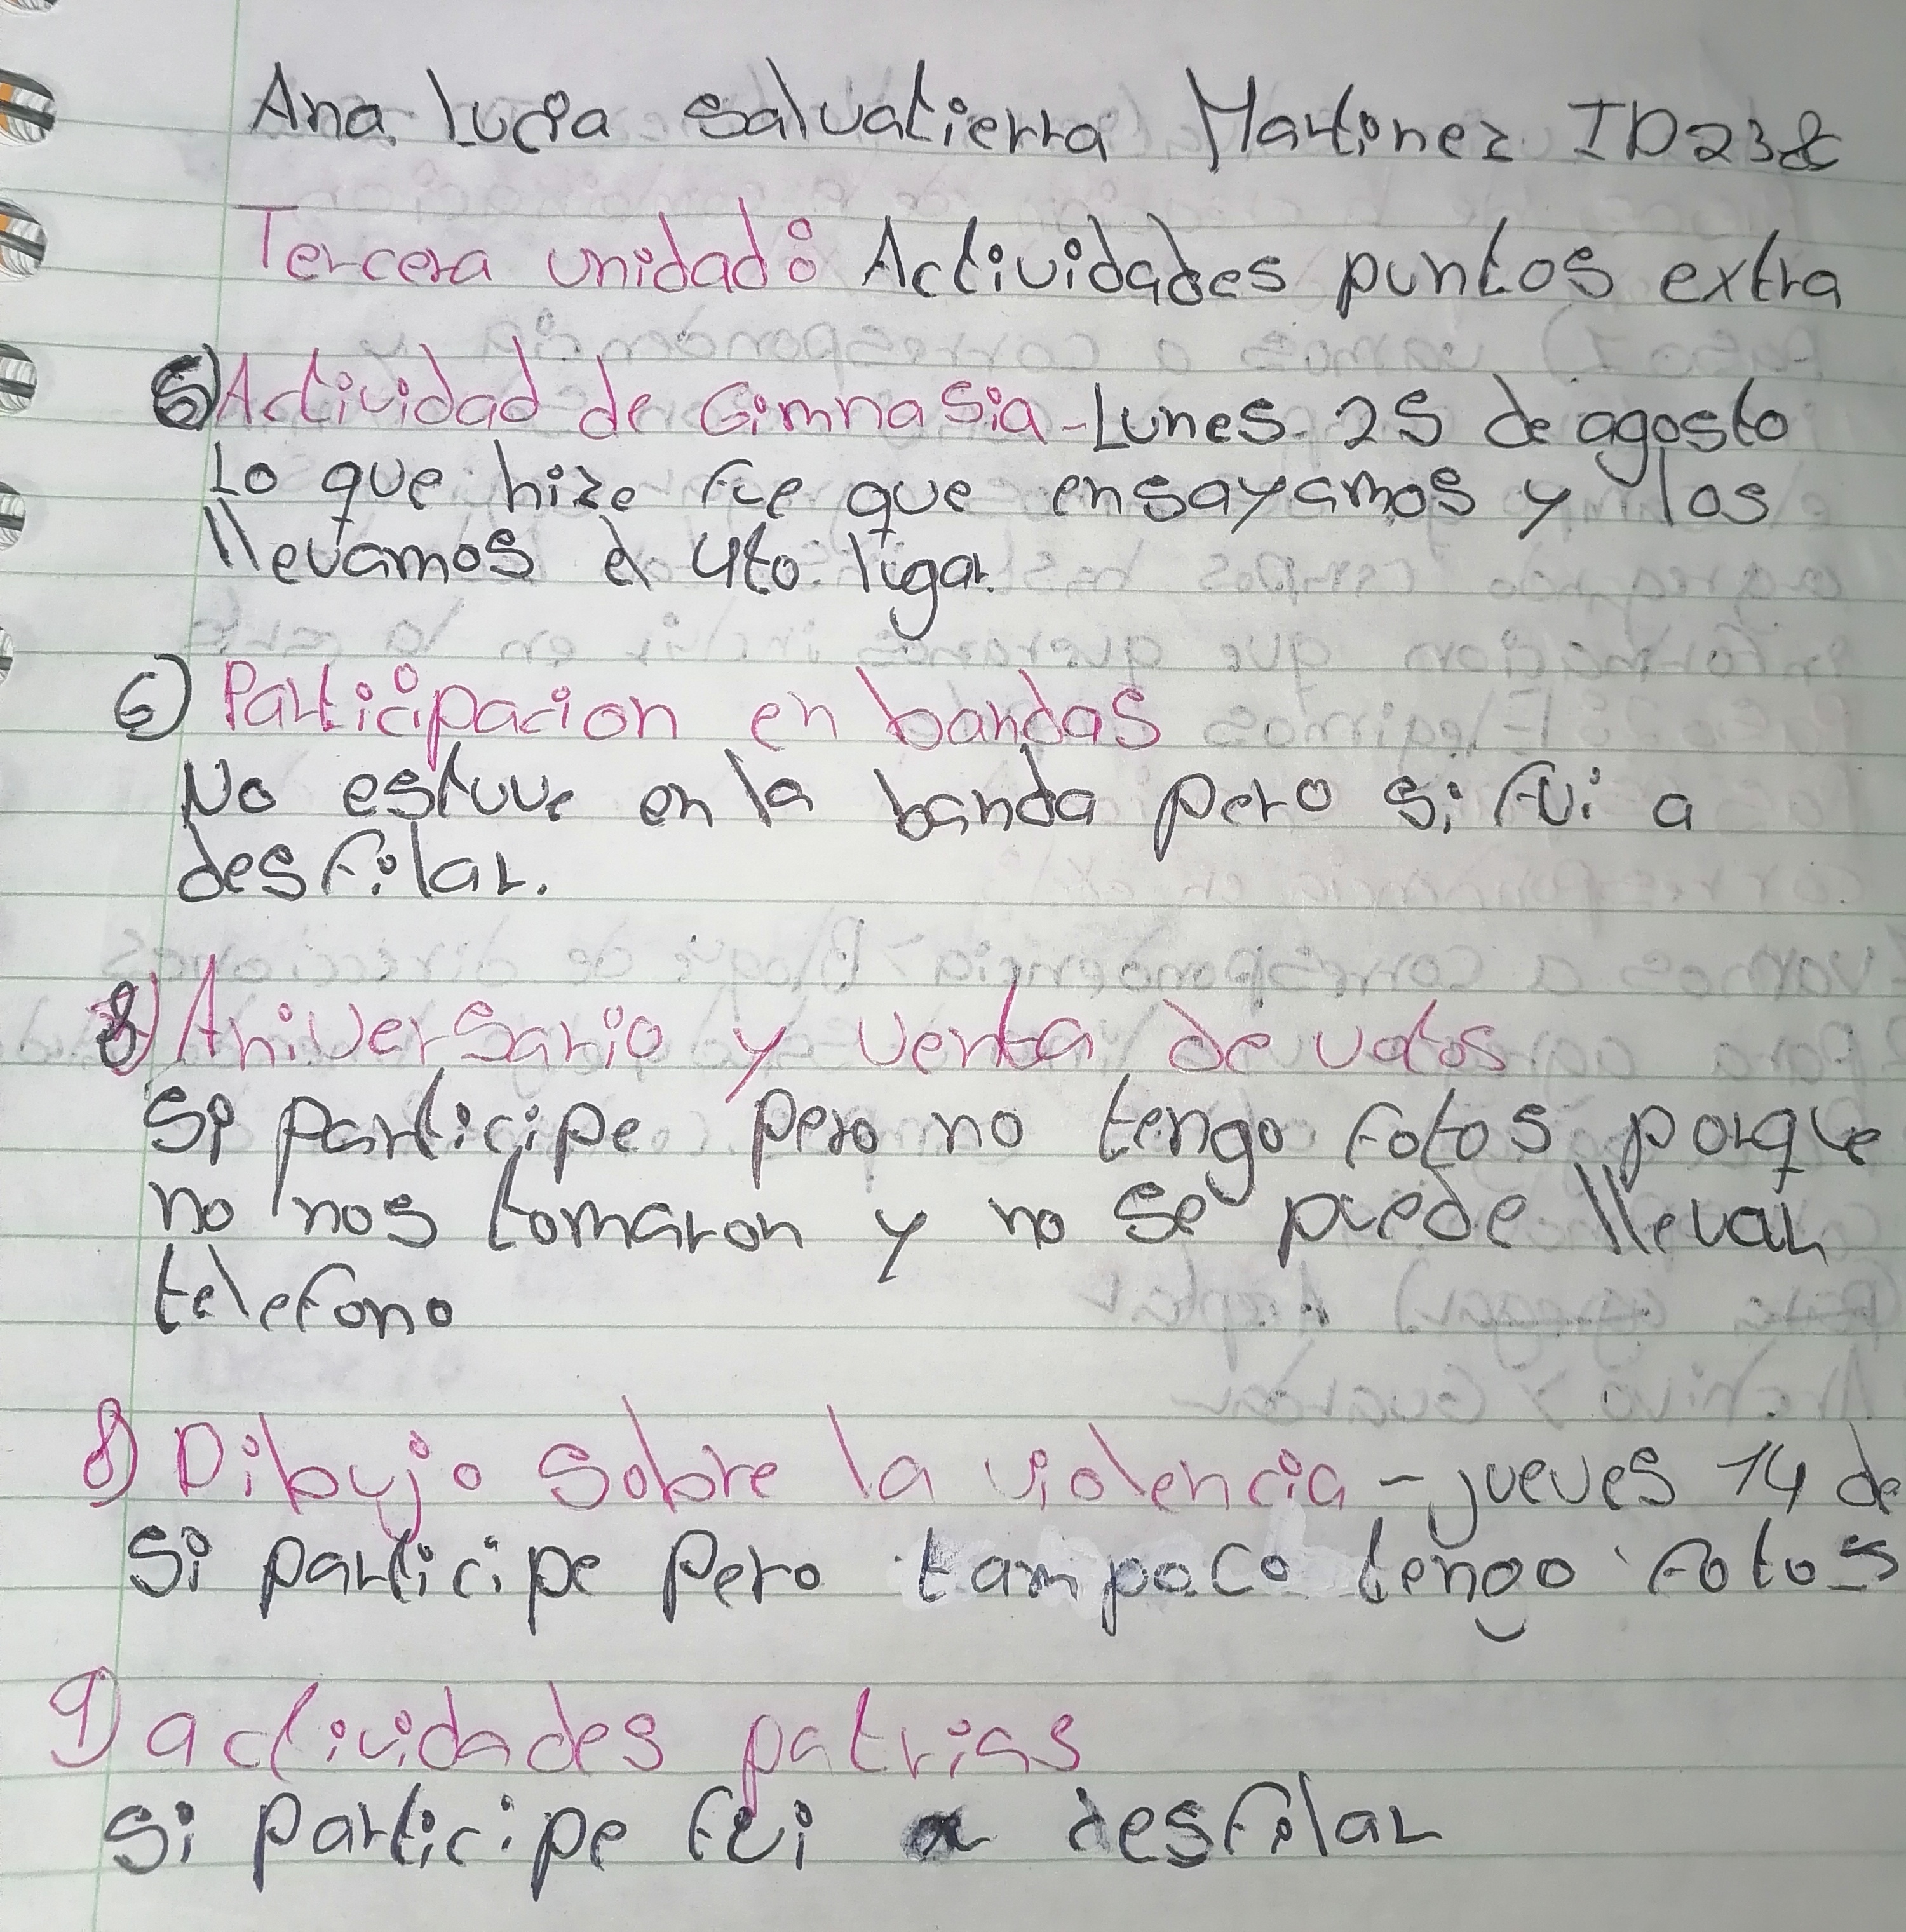 Ana Lucia Salvatierra Martinez ID23&
Tercera unidad: Actividades puntos extra
5) Actividad de Gimnasia - Lunes 25 de agosto
Lo que hize fue que ensayamos y los
llevamos el 4to ligar.
6) Participacion en bandas
No estuve en la banda pero si fui a
desfilar.
8) Aniversario y venta de votos
Si participe pero no tengo fotos porque
no nos tomaron y no se puede llevar
telefono
8) Dibujo sobre la violencia - jueves 14 de
Si participe pero tampoco tengo fotos
9) actividades patrias
Si participe fui a desfilar